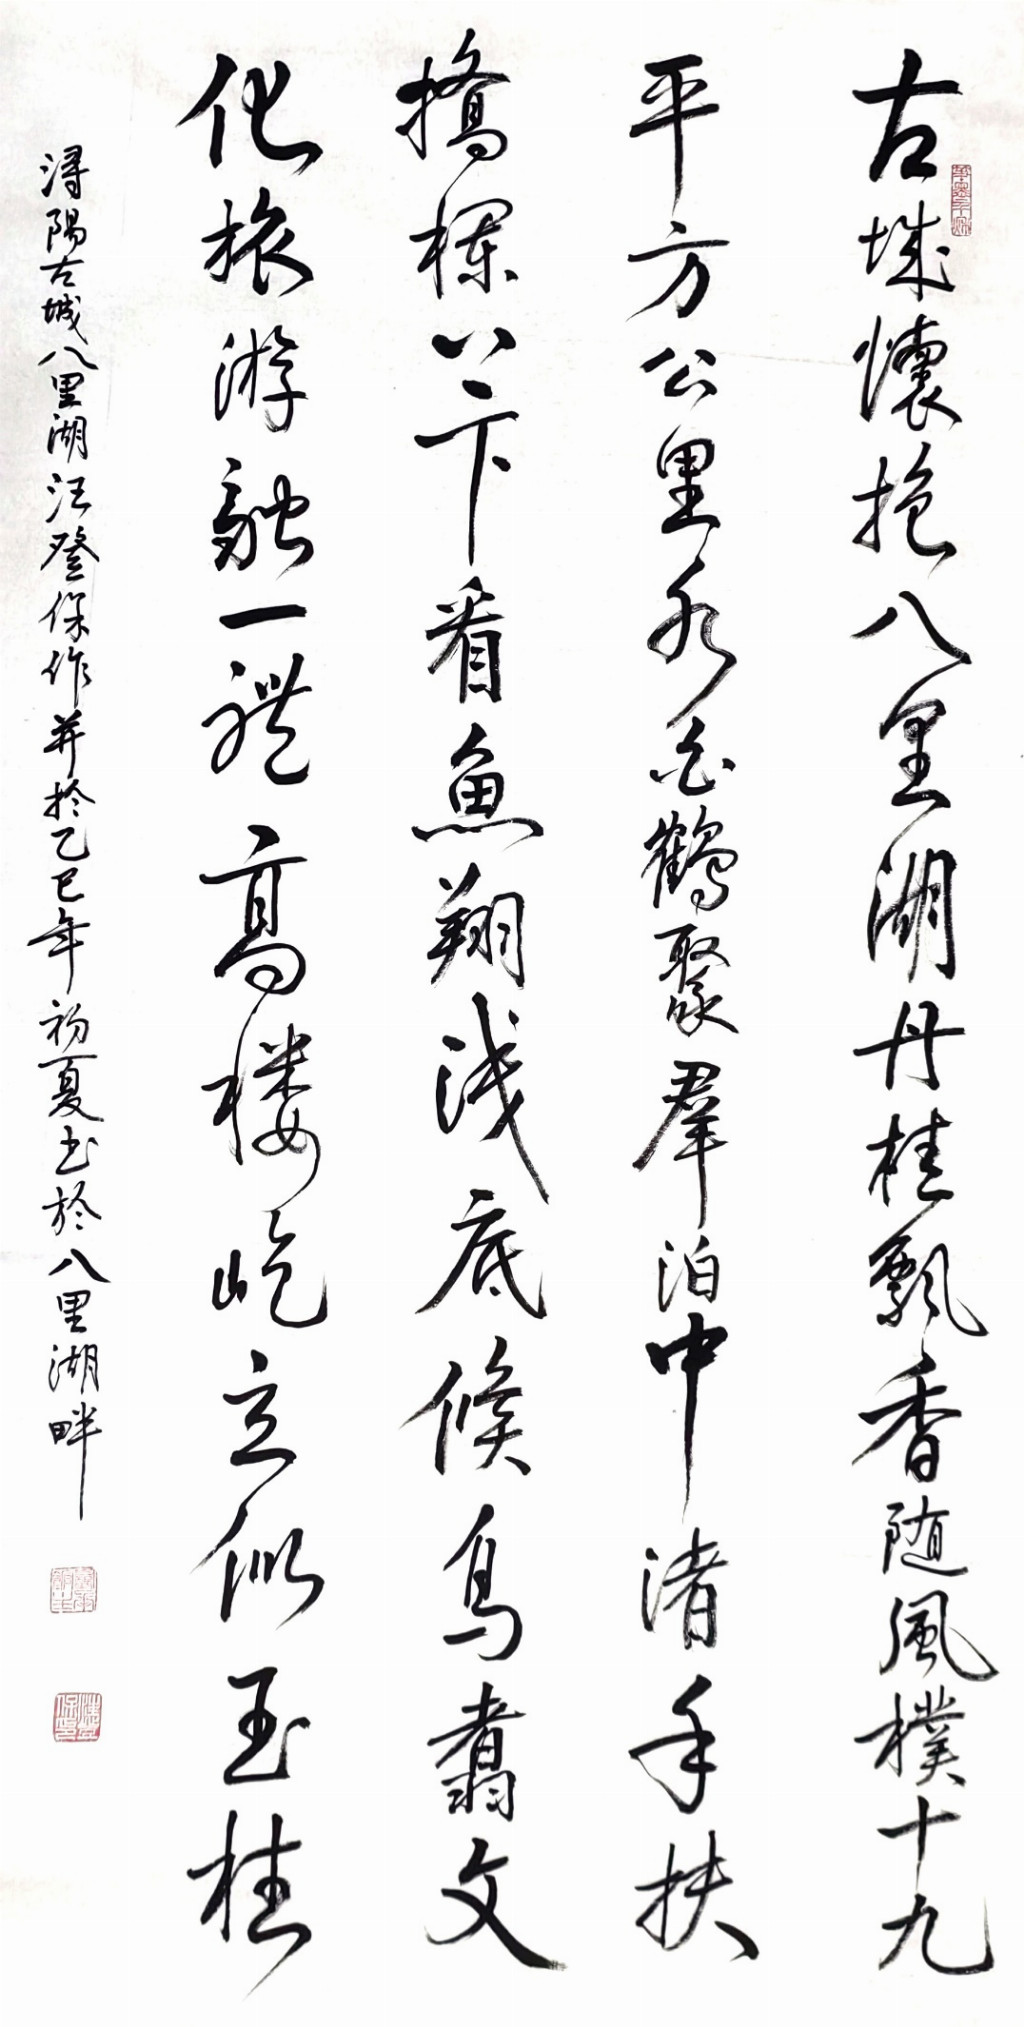 古城懷抱八里湖丹桂飄香随風樸十九
平方公里水白鶴聚羣泊中渚手扶
橋欄以下看魚翔浅底候鳥翥文
化旅游融一體高楼屹立似玉柱
潯陽古城八里湖汪登保作并於乙巳年初夏书於八里湖畔